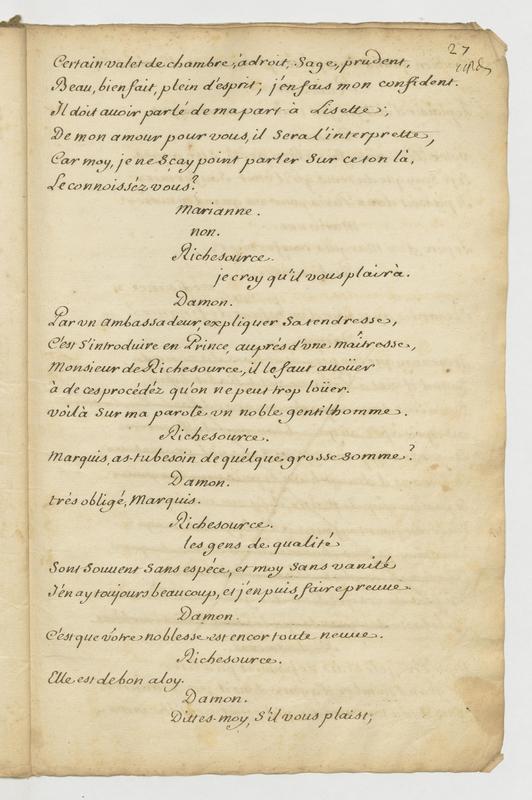 27
Certain valet de chambre, adroit, Sage, prudent,
Beau, bien fait, plein d'esprit; j'en fais mon confident.
Il doit avoir parlé de ma part à Lisette;
De mon amour pour vous, il Sera l'interprette,
Car moy, je ne Sçay point parler Sur ce ton là,
Le connoisséz vous?
Marianne.
non.
Richesource.
je croy qu'il vous plairà.
Damon.
Par vn ambassadeur, expliquer Sa tendresse,
C'est S'introduire en Prince, auprés d'vne maîtresse,
Monsieur de Richesource, il le faut auoüer
à de ces procédéz qu'on ne peut trop loüer.
voilà Sur ma parole vn noble gentilhomme.
Richesource.
Marquis, as-tu besoin de quélque grosse Somme?
Damon.
trés obligé, Marquis.
Richesource.
les gens de qualité
Sont Souuent Sans espéce, et moy Sans vanité
J'en ay toujours beaucoup, et j'en puis faire preuue
Damon.
C'est que vôtre noblesse est encor toute neuue.
Richesource.
Elle est de bon aloy.
Damon.
Dittes-moy, S'il vous plaist,